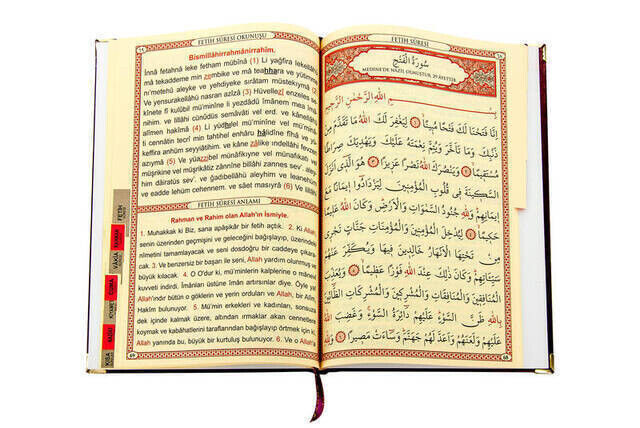 FETİH SÛRESİ OKUNUŞU
Bismillâhirrahmânirrahîm.
İnnâ fetahnâ leke fetham mübînâ (1) Li yağfira lekellâhu
mâ tekaddeme min zembike ve mâ teahhara ve yütimme
ni'metehû aleyke ve yehdiyeke sırâtam müstekîmâ (2)
Ve yensurakellâhü nasran azîzâ (3) Hüvellezî enzeles se
kînete fî kulûbil mü'minîne li yezdâdû îmânem mea îmâ
nihim. ve lillâhi cünûdüs semâvâti vel erd. ve kânellâhü
alîmen hakîmâ (4) Li yüdhılel mü'minîne vel mü'minâ
ti cennâtin tecrî min tahtihel enhâru hâlidîne fîhâ ve yü
keffira anhüm seyyiâtihim. ve kâne zâlike ındellâhi fevzen
azıymâ (5) Ve yüazzibel münâfikıyne vel münâfikâti vel
müşrikîne vel müşrikâtiz zânnîne billâhi zannes sev'. aley
him dâiratüs sev'. ve ğadıbellâhü aleyhim ve leanehüm
ve eadde lehüm cehennem. ve sâet masıyrâ (6) Ve lillâ
FETİH SÛRESİ ANLAMI
Rahman ve Rahim olan Allah'ın İsmiyle.
1. Muhakkak ki Biz, sana apâşikâr bir fetih açtık. 2. Ki Allah,
senin üzerinden geçmişini ve geleceğini bağışlayıp, üzerindeki
nîmetini tamamlayacak ve seni dosdoğru bir caddeye çıkara
cak. 3. Ve benzersiz bir başarı ile seni, Allah yardım olunmuş ve
büyük kılacak. 4. O O'dur ki, mü'minlerin kalplerine o mânevî
kuvveti indirdi. İmânları üstüne îmân artırsınlar diye. Öyle ya!
Allah'ındır bütün o göklerin ve yerin orduları ve Allah, bir Alîm,
Hakîm bulunuyor. 5. Mü'min erkekleri ve kadınları, sonsuza
dek içinde kalmak üzere, altından ırmaklar akan cennetlere
koymak ve kabahatlerini taraflarından bağışlayıp örtmek için ki,
Allah yanında bu, büyük bir kurtuluş bulunuyor. 6. Ve o Allah'a
69
FETİH
RAHMAN
VÂKIA
CUMA
MÜLK
KISA
FETİH SÛRESİ
سُورَةُ الْفَتْحِ
MEDİNE'DE NÂZİL OLMUŞTUR, 29 ÂYETTİR
بِسْمِ اللّٰهِ الرَّحْمٰنِ الرَّحِيمِ
اِنَّا فَتَحْنَا لَكَ فَتْحًا مُبِينًا ﴿١﴾ لِيَغْفِرَ لَكَ اللّٰهُ مَا تَقَدَّمَ مِنْ
ذَنْبِكَ وَمَا تَاَخَّرَ وَيُتِمَّ نِعْمَتَهُ عَلَيْكَ وَيَهْدِيَكَ صِرَاطًا
مُسْتَقِيمًا ﴿٢﴾ وَيَنْصُرَكَ اللّٰهُ نَصْرًا عَزِيزًا ﴿٣﴾ هُوَ الَّذِى اَنْزَلَ
السَّكِينَةَ فِى قُلُوبِ الْمُؤْمِنِينَ لِيَزْدَادُوا اِيمَانًا مَعَ
اِيمَانِهِمْ وَلِلّٰهِ جُنُودُ السَّمٰوَاتِ وَالْاَرْضِ وَكَانَ اللّٰهُ عَلِيمًا
حَكِيمًا ﴿٤﴾ لِيُدْخِلَ الْمُؤْمِنِينَ وَالْمُؤْمِنَاتِ جَنَّاتٍ تَجْرِى
مِنْ تَحْتِهَا الْاَنْهَارُ خَالِدِينَ فِيهَا وَيُكَفِّرَ عَنْهُمْ
سَيِّئَاتِهِمْ وَكَانَ ذٰلِكَ عِنْدَ اللّٰهِ فَوْزًا عَظِيمًا ﴿٥﴾ وَيُعَذِّبَ
الْمُنَافِقِينَ وَالْمُنَافِقَاتِ وَالْمُشْرِكِينَ وَالْمُشْرِكَاتِ الظَّانِّينَ
بِاللّٰهِ ظَنَّ السَّوْءِ عَلَيْهِمْ دَائِرَةُ السَّوْءِ وَغَضِبَ اللّٰهُ
عَلَيْهِمْ وَلَعَنَهُمْ وَاَعَدَّ لَهُمْ جَهَنَّمَ وَسَاءَتْ مَصِيرًا ﴿٦﴾ وَلِلّٰهِ
68